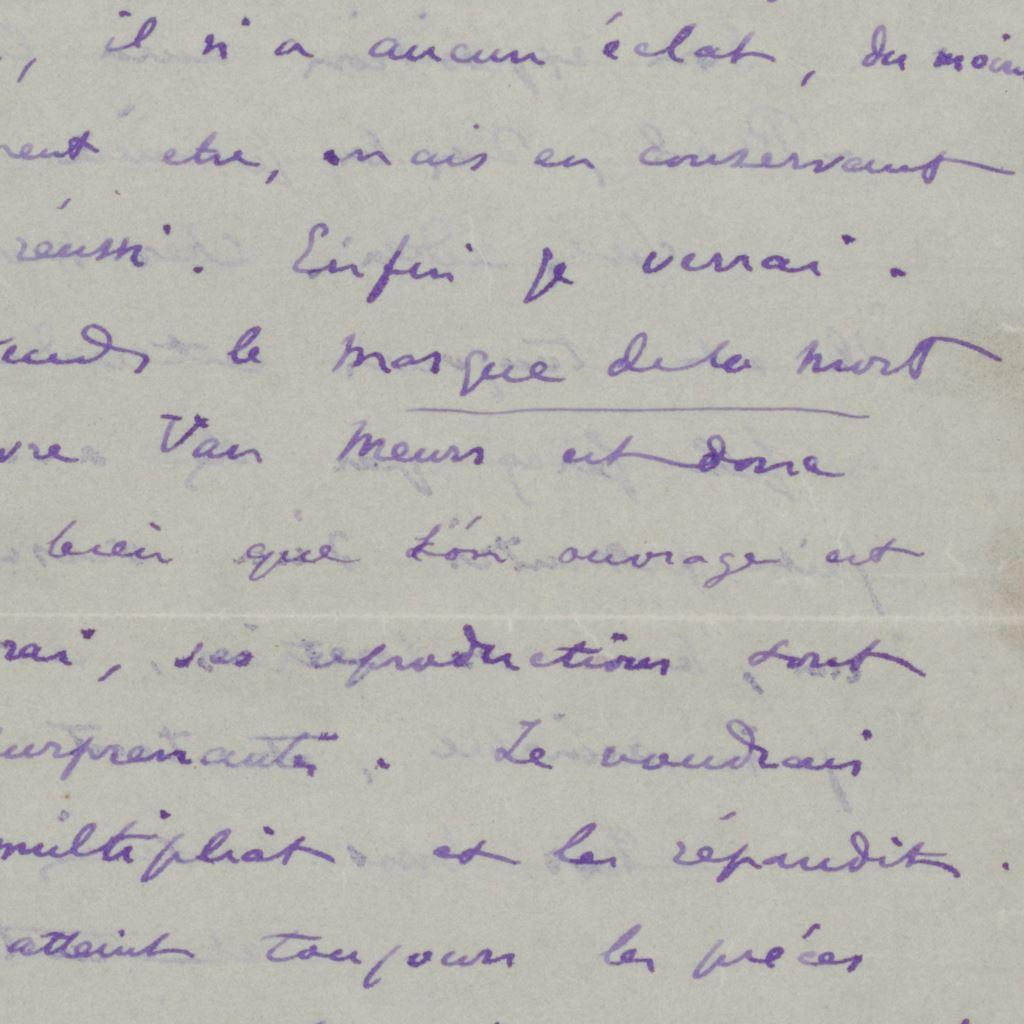 , il n'a aucun éclat, du moins
etre, mais en conservant
réussi. Enfin je verrai.
le masque de la mort
Van Meurs est donc
bien que son ouvrage est
rai, ses reproductions sont
urprenantes. Je voudrais
multipliât et les répandit.
atteint toujours les pièces